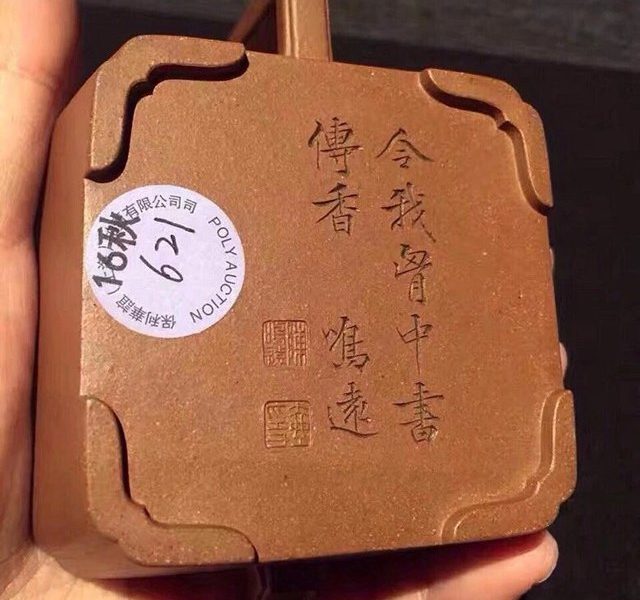 令我胷中書
傳香 鳴遠
保利華誼（
有限公司
POLY AUCTION
16秋
621